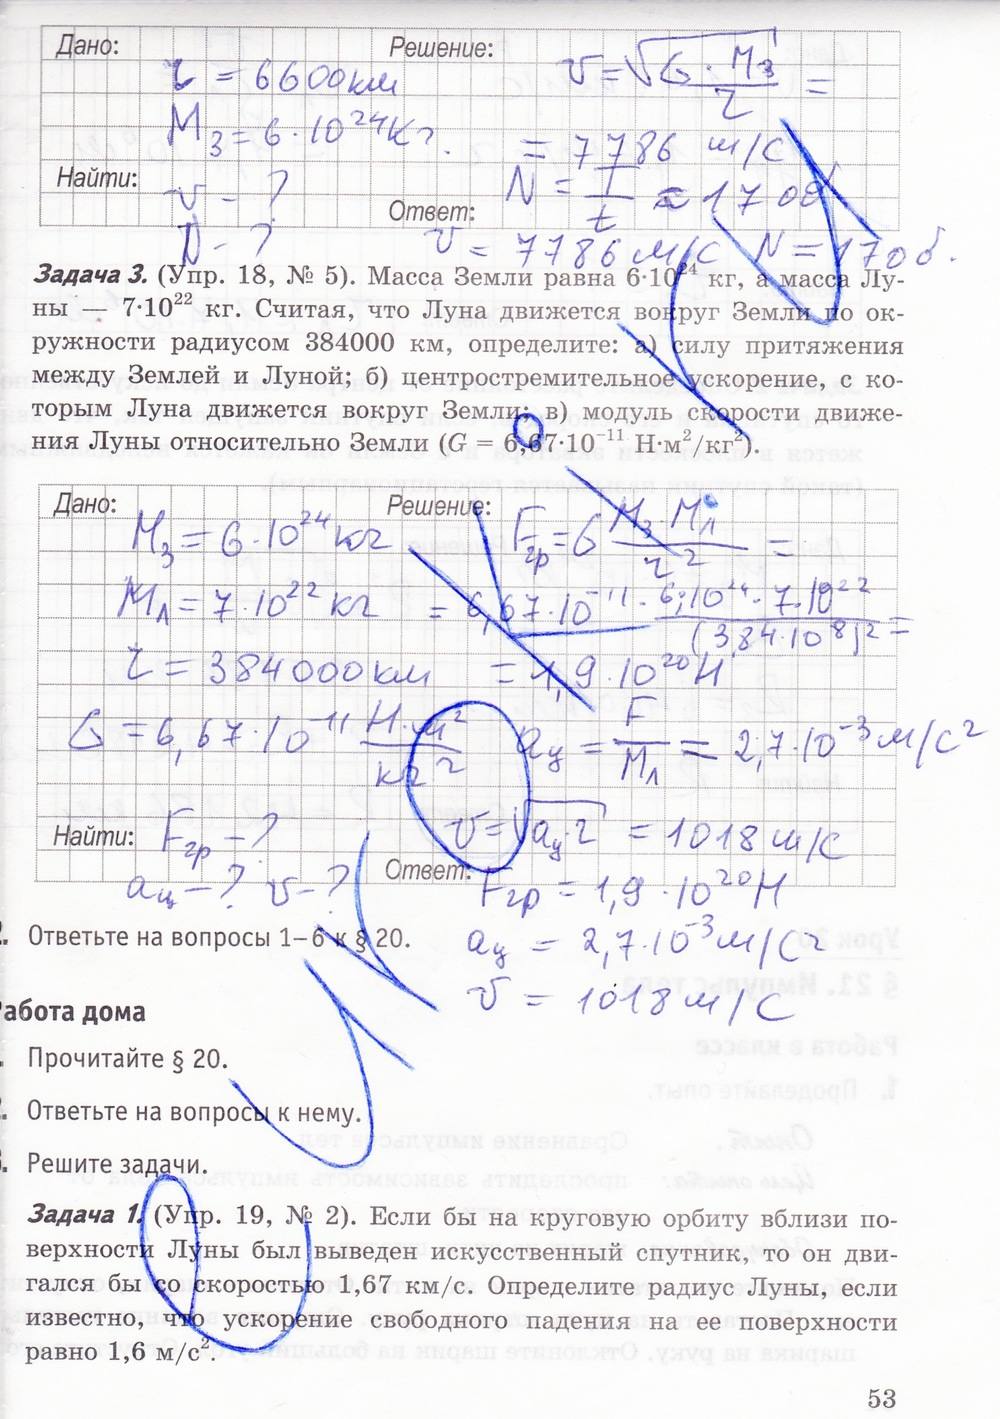 Дано:
Решение:
r = 6600 км
v = √(G · Mз / r) =
Mз = 6 · 10²⁴ кг.
= 7786 м/с
Найти:
v - ?
N = T/t ≈ 17 об
Ответ:
N - ?
v = 7786 м/с N = 17 об.
Задача 3. (Упр. 18, № 5). Масса Земли равна 6·10²⁴ кг, а масса Лу-
ны — 7·10²² кг. Считая, что Луна движется вокруг Земли по ок-
ружности радиусом 384000 км, определите: а) силу притяжения
между Землей и Луной; б) центростремительное ускорение, с ко-
торым Луна движется вокруг Земли; в) модуль скорости движе-
ния Луны относительно Земли (G = 6,67·10⁻¹¹ Н·м²/кг²).
Дано:
Решение:
Mз = 6 · 10²⁴ кг
Fгр = G Mз Mл / r² =
Mл = 7 · 10²² кг
= 6,67 · 10⁻¹¹ · 6·10²⁴ · 7·10²² / (3,84·10⁸)² =
r = 384000 км
= 1,9 · 10²⁰ Н
G = 6,67 · 10⁻¹¹ Н·м²/кг²
aц = F/Mл = 2,7 · 10⁻³ м/с²
Найти:
Fгр - ?
v = √(aц · r) = 1018 м/с
aц - ? v - ?
Ответ:
Fгр = 1,9 · 10²⁰ Н
aц = 2,7 · 10⁻³ м/с²
v = 1018 м/с
2. Ответьте на вопросы 1–6 к § 20.
Работа дома
Прочитайте § 20.
Ответьте на вопросы к нему.
Решите задачи.
Задача 1. (Упр. 19, № 2). Если бы на круговую орбиту вблизи по-
верхности Луны был выведен искусственный спутник, то он дви-
гался бы со скоростью 1,67 км/с. Определите радиус Луны, если
известно, что ускорение свободного падения на ее поверхности
равно 1,6 м/с².
53